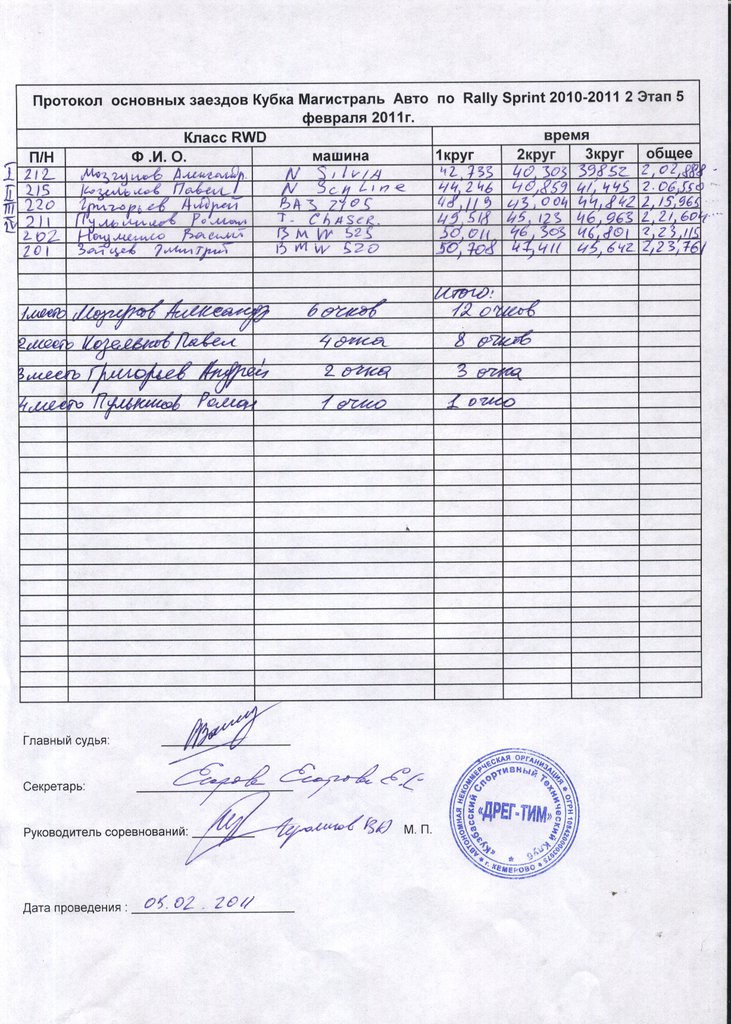 Протокол основных заездов Кубка Магистраль Авто по Rally Sprint 2010-2011 2 Этап 5
февраля 2011г.
Класс RWD время
П/Н Ф .И. О. машина 1круг 2круг 3круг общее
I 212 Мозгунов Александр. N Silvia 42,733 40,303 39852 2,02,888
II 215 Павел N 44,246 40,859 41,445 2.06,550
III 220 Григорьев Андрей ВАЗ 2105 48,119 43,004 44,842 2,15,965
IV 211 Роман T. Chaser 49,518 45,123 46,963 2,21,604
202 Науменко Василий BMW 525 50,011 46,303 46,801 2,23,115
201 Зайцев Дмитрий BMW 520 50,708 47,411 45,642 2,23,761
Итого:
1место Александр 6 очков 12 очков
2место Павел 4 очка 8 очков
3место Григорьев Андрей 2 очка 3 очка
4место Роман 1 очко 1 очко
Главный судья:
Секретарь: Егорова Егорова Е.
Руководитель соревнований: М. П.
АВТОНОМНАЯ НЕКОММЕРЧЕСКАЯ ОРГАНИЗАЦИЯ
«Кузбасский Спортивный Технический Клуб
«ДРЕГ-ТИМ»
г. КЕМЕРОВО
Дата проведения : 05.02.2011